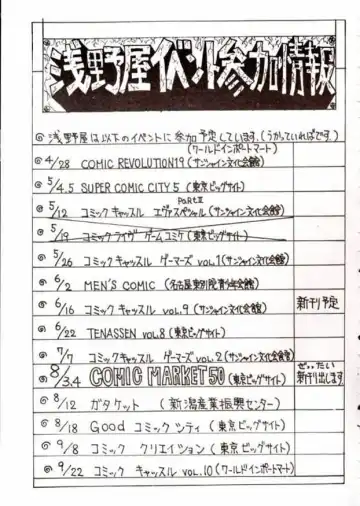 浅野屋イベント参加情報
◎浅野屋は以下のイベントに参加予定しています。(うかっていればです。)
(ワールドインポートマート)
◎4/28 COMIC REVOLUTION19 (サンシャイン文化会館)
◎5/4.5 SUPER COMIC CITY5 (東京ビッグサイト)
PartⅡ
◎5/12 コミックキャッスル エヴァスペシャル (サンシャイン文化会館)
◎5/19 コミックライヴ ゲームコミケ (東京ビッグサイト)
◎5/26 コミックキャッスル ゲーマーズ VOL.1 (サンシャイン文化会館)
◎6/2 MEN'S COMIC (名古屋東別院青少年会館)
◎6/16 コミックキャッスル VOL.9 (サンシャイン文化会館) 新刊予定
◎6/22 TENASSEN VOL.8 (東京ビッグサイト)
◎7/7 コミックキャッスル ゲーマーズ VOL.2 (サンシャイン文化会館)
◎8/3.4 COMIC MARKET50 (東京ビッグサイト) ぜったい新刊出します。
◎8/12 ガタケット (新潟産業振興センター)
◎8/18 Good コミックシティ (東京ビッグサイト)
◎9/8 コミック クリエイション (東京ビッグサイト)
◎9/22 コミック キャッスル VOL.10 (ワールドインポートマート)